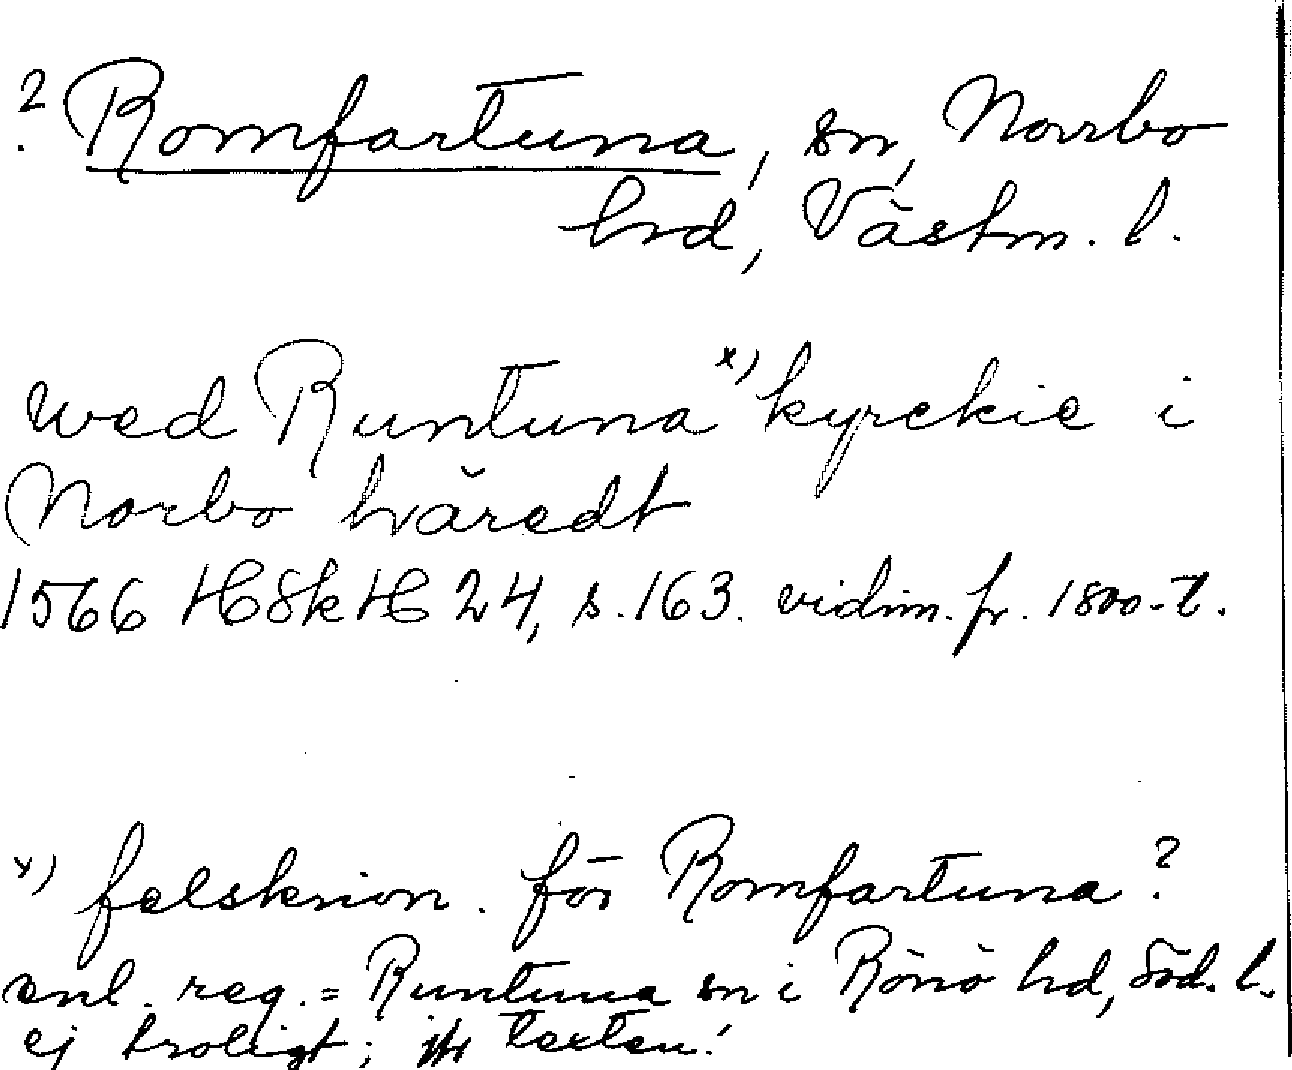 ? Romfartuna, sn, Norrbo
hrd, Västm. l.
wed Runtuna x) kyrckie i
Norbo häredt
1566 HSkH 24, s. 163. vidim. fr. 1800-t.
x) felskrivn. för Romfartuna?
enl. reg. = Runtuna sn i Rönö hd, Söd. l.
ej troligt; jfr texten!